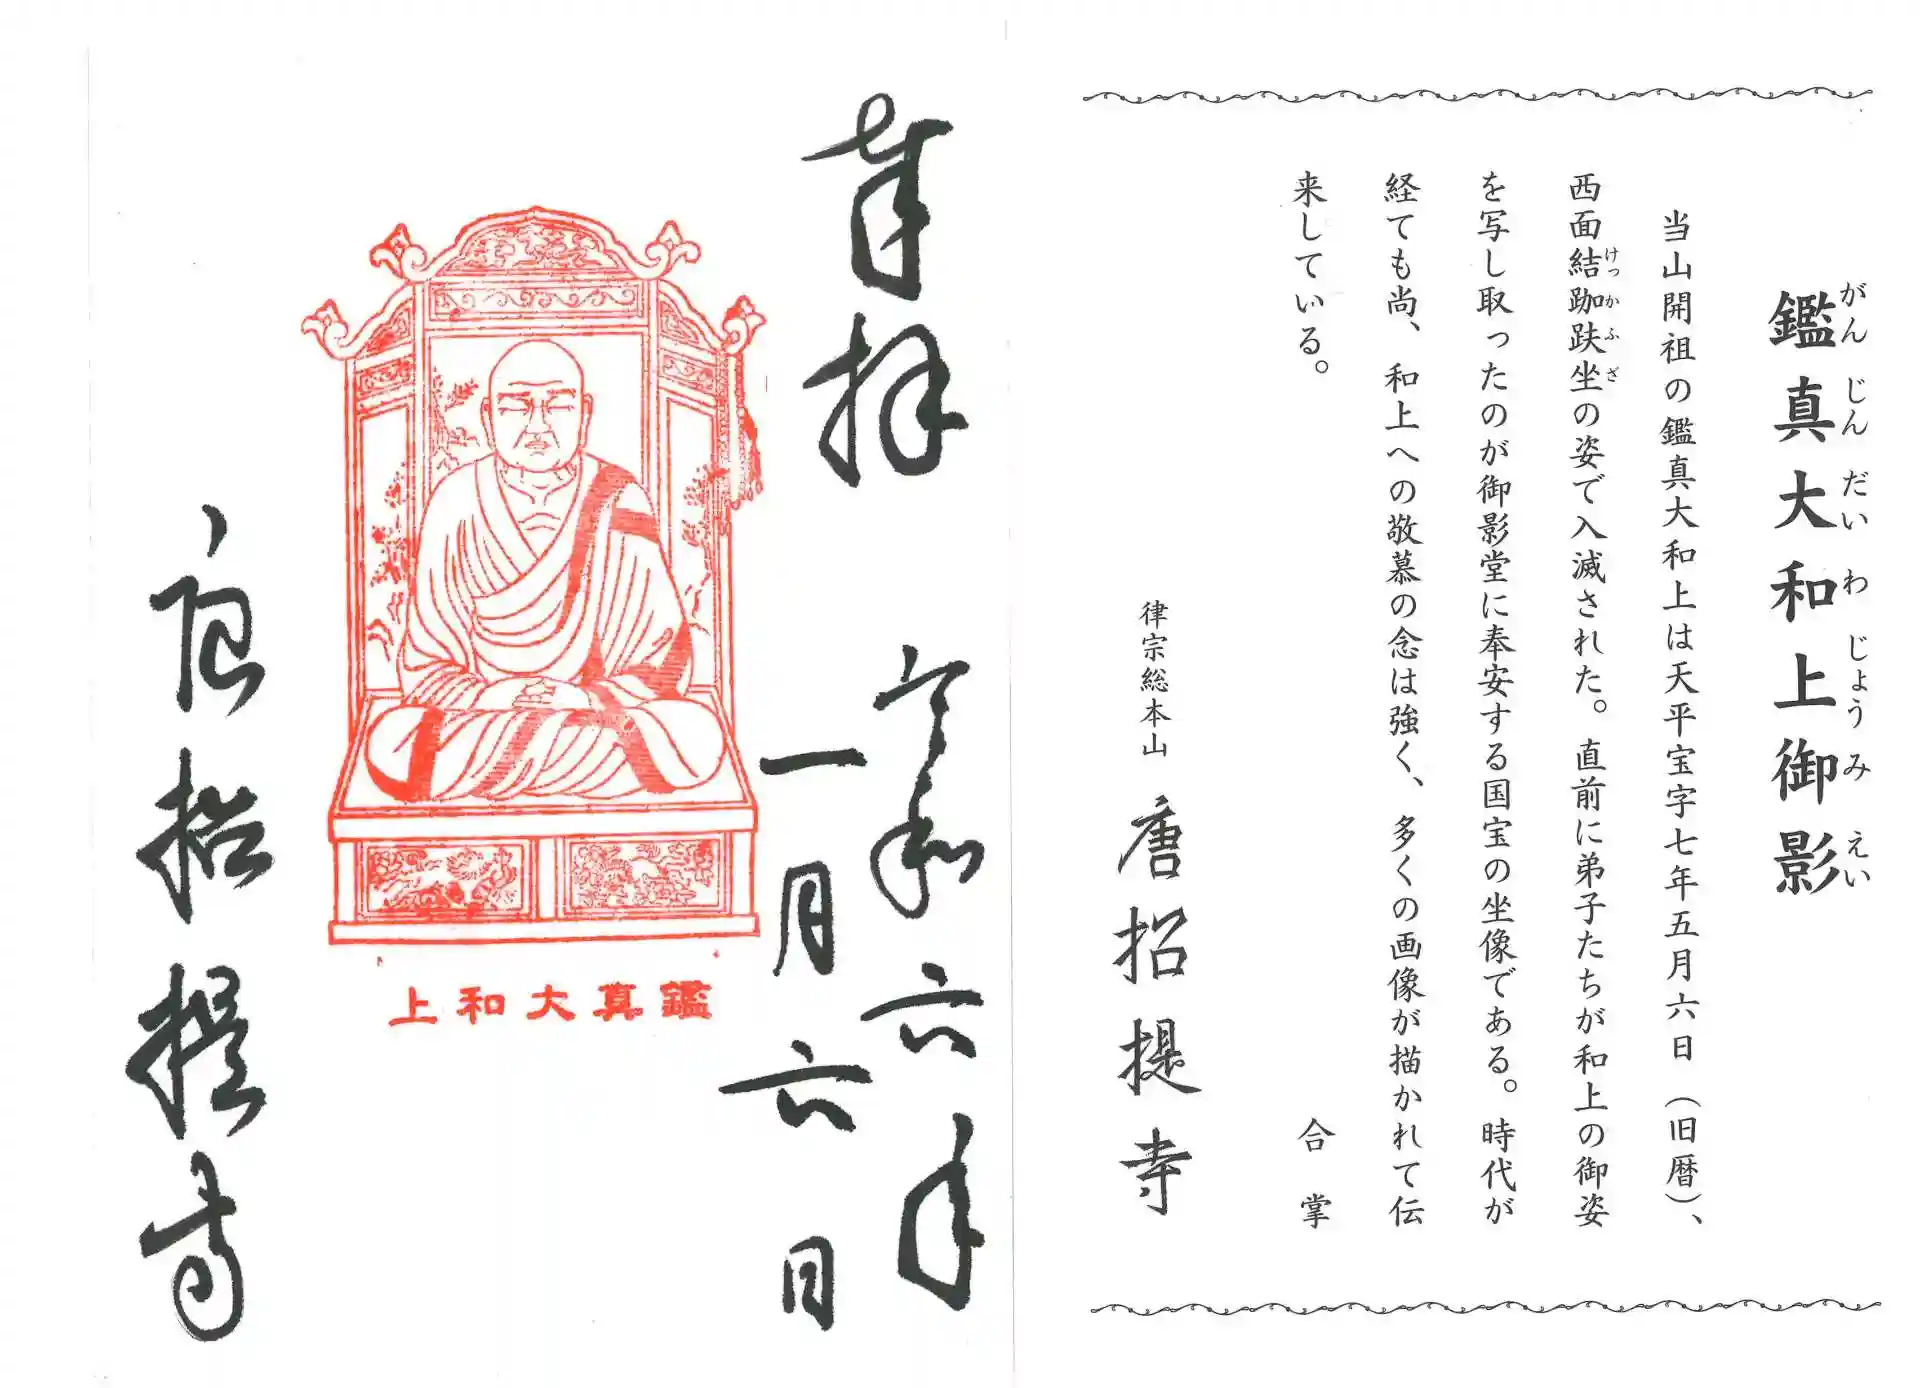 鑑真大和上御影
がんじんだいわじょうみえい
当山開祖の鑑真大和上は天平宝字七年五月六日（旧暦）、
西面結跏趺坐の姿で入滅された。直前に弟子たちが和上の御姿
けっかふざ
を写し取ったのが御影堂に奉安する国宝の坐像である。時代が
経ても尚、和上への敬慕の念は強く、多くの画像が描かれて伝
来している。
合掌
律宗総本山 唐招提寺
奉拝 令和六年
一月六日
上和大真鑑
唐招提寺